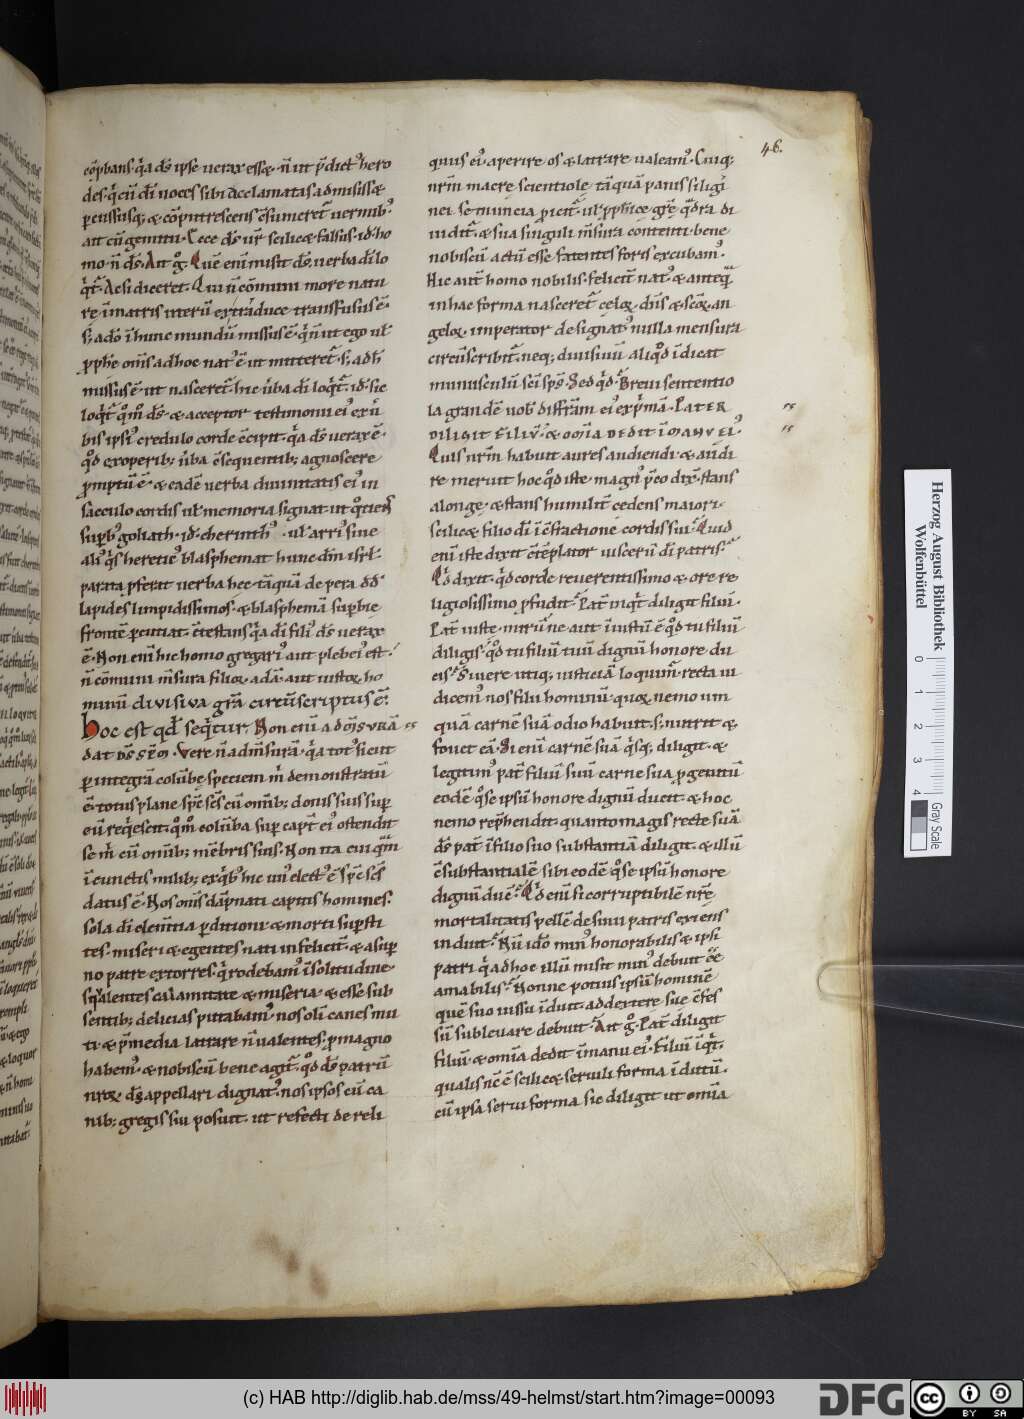 46.
cōpbans· q̇a ds̄ ipse uerax esse· n̄ ut p̄dict᷒ hero
des· q̇ cū dī uoces sibi acclamatas admisisse
percussusq;· & cōputrescens cōsumeret᷒ uermib᷒
ait cū gemitu· Ecce ds̄ ur̄ scilicæ falsus· id· ho
mo· n̄ ds̄· Ait g°· Quē enī misit ds̄, uerba di lo
q̇t᷒· Ac si diceret· Qui n̄ cōmuni more natu
re ī matris uterū ex traduce transfusus ē·
s; a dō ī hunc mundū missus ē· q̇ n̄ ut ego ul᷒
pphe om̄s ad hoc nat᷒ ē ut mitteret᷒· s; ad h̄
missus ē· ut nasceret᷒· hic ūba dī loq̇t᷒· id· sic
loq̇t᷒ q°m° ds̄· & acceptor testimonii ei᷒ ex ū
bis ipsi᷒ credulo corde cōcipit· q̇a ds̄ uerax ē·
q°d ex operib; ūba cōsequentib; agnoscere
promptū ē· & eadē uerba diuinitatis ei᷒ in
sacculo cordis ul᷒ memoria signat· ut q°tiens
supb᷒ goliath· id· cherinth᷒· ul᷒ arri᷒ siue
ali᷒ q̇s heretic᷒ blasphemat hunc dm̄ isrl᷒·
parata pferat uerba hec· tāquā de pera dd̄
lapides limpidissimos· & blasphemā superbie
frontē percutiat· cōtestans q̇a dī fili᷒ ds̄ uerax
ē· Non enī hic homo gregari᷒ aut plebei᷒ est·
n̄ cōmuni m̄sura filiox· adā· aut iustox, ho
minū diuisiua grā circūscriptus ē·
Hoc est qd̄ seq̇tur· Non eni ad mensurā
dat ds̄ sp̄m· Vere n̄ ad m̄surā· q̇a tot᷒ sicut
per integrā colūbe speciem m̄ demonstratū
ē· totus plane spc̄ scs̄ cū omīb; donis suis super
eū req̇escit· q°m° colūba super capt̄ ei᷒ ostendit
se m̄ cū omīb; mēbris suis· Non ita cuiq̄m
ī cunctis milib; ex q̇b᷒ hic un᷒ elect᷒ ē spc̄ scs̄
datus ē· Nos om̄s dāpnati capitis homines·
sola dī clem̄tia perditioni & morti superst
tes· miseri & egentes nati infelicit̄· & a super
no patre extorres· q̇ rodebam᷒ ī solitudine·
squalentes calamitate & miseria· & esse sub
sentib; delicias putabam᷒· nos olī canes mu
ti· & p̄media latrare n̄ ualentes· pro magno
habem᷒· & nobiscū bene agit̄· q°d ds̄ patrū
nrox· ds̄ appellari dignat᷒· nos ipsos cū ca
nib; gregis sui posuit· ut refecti de reli
quiis ei᷒· aperire os & latrare ualeam᷒· Cuiq;
nrm̄ macre scientiole tāquā panis siligi
nei semuncia proicit᷒· ul᷒ pphice grē q̄dra di
uidit᷒· & sua singuli m̄sura contenti· bene
nobiscū actū esse fatentes foris excubam᷒·
Hic aut̄ homo nobilis· felicit̄ nat᷒· & anteq̄
in hac forma nasceret᷒· celox· dn̄s & scōx· an
gelox· imperator designat᷒ nulla mensura
circūscribit᷒· neq; diuisiuū aliq°d īdicat
munusculū sci sps̄· Sed q̇d· Breui sententio
la grandē uob᷒ diffr̄am ei᷒ exp̄mā· Pater
diligit filiū· & omīa dedit ī manu ei᷒·
Quis nrm̄ habuit aures audiendi· & audi
re meruit hoc q°d iste magn᷒ p̄co dix· stans
a longe· & stans humilit̄ cedens maiori·
scilicæ filio dī ī cōfractione cordis sui· Quid
eni iste dixit cōtēplator uiscerū dī patris·
Q°d dixit· q̇d corde reuerentissimo & ore re
ligiosissimo profudit· Pat̄ inq̇t diligit filiū·
Pat̄ iuste· mirū ne aut iniustū ē q°d tu filiū
diligis· q°d tu filiū tuū dignū honore du
cis· S; uere utiq; iusticiā loquim̄· recta iu
dicem᷒ nos filii hominū· quox· nemo um
quā carnē suā odio habuit· s; nutrit &
fouet eā· Si eni carnē suā q̇sq; diligit· &
legitim᷒ pat̄ filiū suū carne sua progenitū
eodē q°se ipsū honore dignū ducit· & hoc
nemo rep̄hendit· quanto magis recte suā
ds̄ pat̄ ī filio suo substantiā diligit· & illū
cōsubstantialē sibi eodē q°se ipsū honore
dignū ducē· Q°d eni si corruptibilē nrē
mortalitatis pellē de sinu patris exiens
induit· Nū idō min᷒ honorabilis & ipsi
patri q̇ ad hoc illū misit min᷒ debuit ēē
amabilis· Nonne potius ipsū hominē
quē suo iussu īduit· ad dextere sue cōses
sū subleuare debuit· Ait g°· Pat̄ diligit
filiū· & omīa dedit ī manu ei᷒· Filiū īq̇t·
qualis nc̄ ē scilicæ seruili forma īdutū·
cū ipsa serui forma sic diligit ut omīa
Herzog August Bibliothek
Wolfenbüttel
0 1 2 3 4
Gray Scale
(c) HAB http://diglib.hab.de/mss/49-helmst/start.htm?image=00093
DFG
CC BY SA